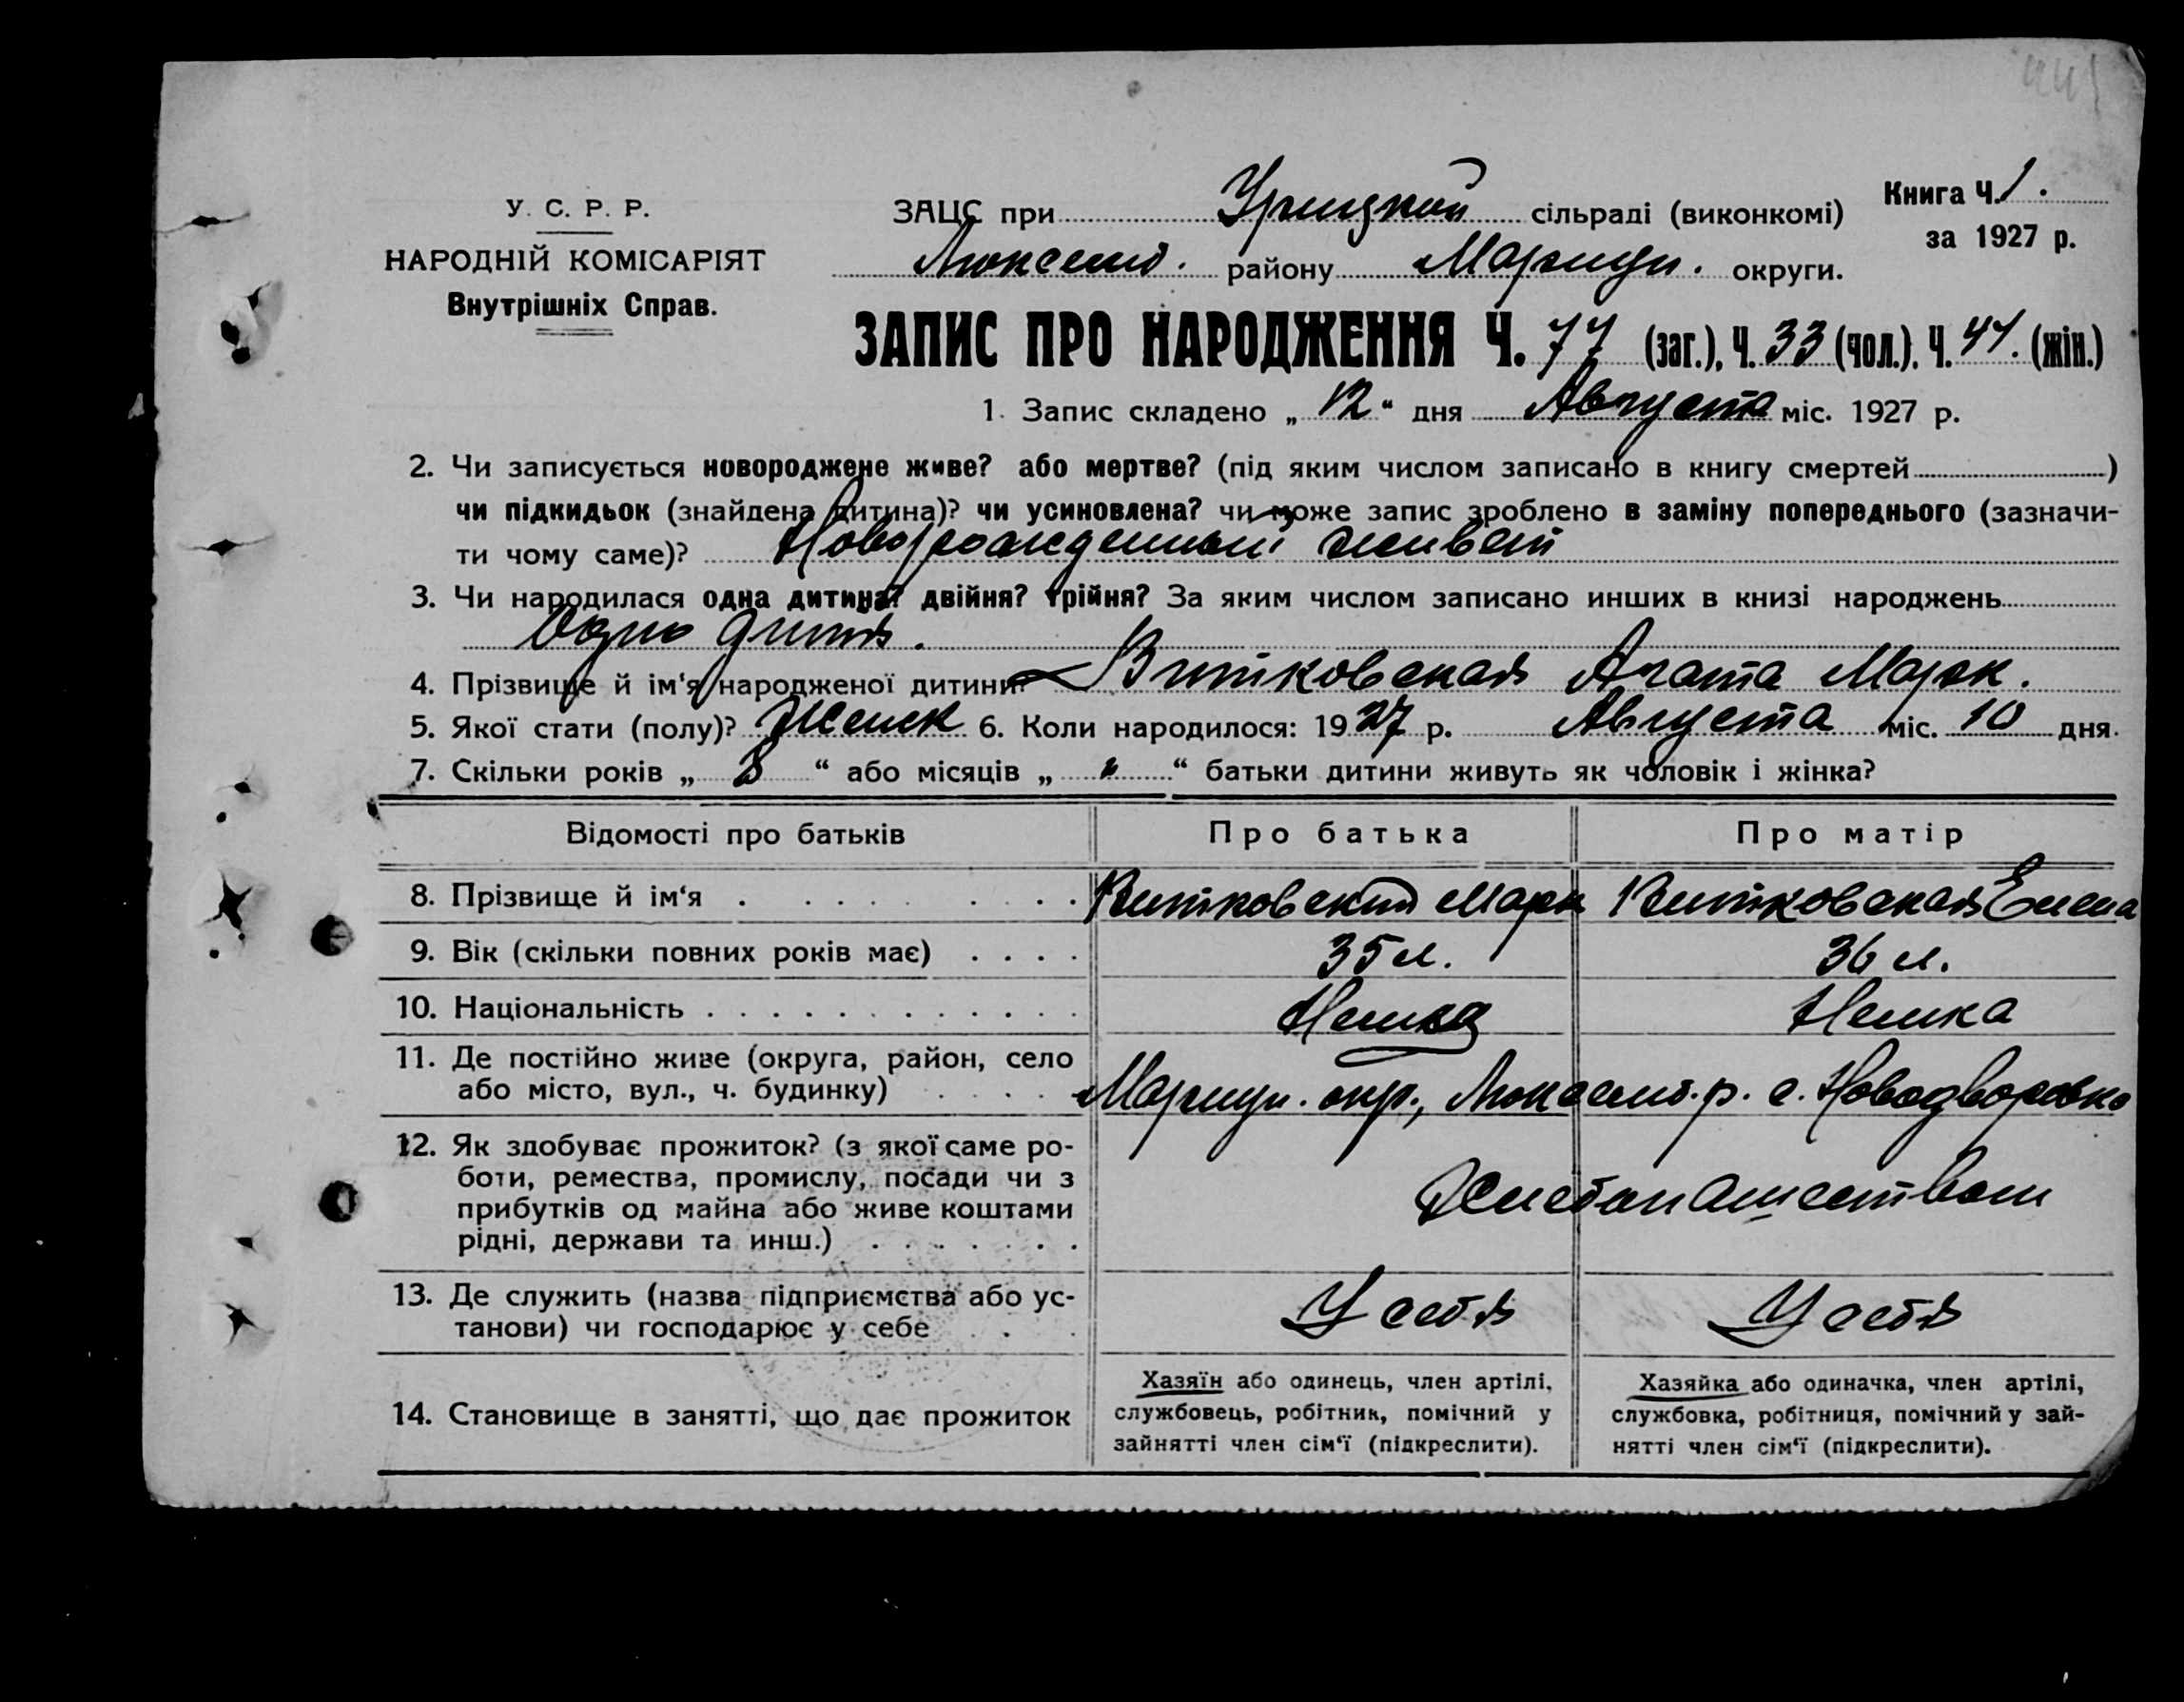 У. С. Р. Р.
НАРОДНІЙ КОМІСАРІЯТ
Внутрішніх Справ.
ЗАЦС при Урицкой сільраді (виконкомі)
Люксемб. району Мариуп. округи.
Книга Ч. 1.
за 1927 р.
ЗАПИС ПРО НАРОДЖЕННЯ Ч. 77 (заг.), Ч. 33 (чол.), Ч. 44. (жін.)
1. Запис складено „ 12 “ дня Августа міс. 1927 р.
2. Чи записується новороджене живе? або мертве? (під яким числом записано в книгу смертей )
чи підкидьок (знайдена дитина)? чи усиновлена? чи може запис зроблено в заміну попереднього (зазначи-
ти чому саме)? Новорожденный живет
3. Чи народилася одна дитина? двійня? трійня? За яким числом записано инших в книзі народжень
Одно дитя.
4. Прізвище й ім'я народженої дитини? Витковская Агата Марк.
5. Якої стати (полу)? Женск 6. Коли народилося: 1927 р. Августа міс. 10 дня.
7. Скільки років „ 8 “ або місяців „ " “ батьки дитини живуть як чоловік і жінка?
Відомості про батьків Про батька Про матір
8. Прізвище й ім‘я . . . . . . . . . Витковский Марк Витковская Елена
9. Вік (скільки повних років має) . . . . 35 л. 36 л.
10. Національність . . . . . . . . . . . . Немец Немка
11. Де постійно живе (округа, район, село
або місто, вул., ч. будинку) . . . . Мариуп. окр., Люксемб. р. с. Новодворовка
12. Як здобуває прожиток? (з якої саме ро-
боти, ремества, промислу, посади чи з
прибутків од майна або живе коштами
рідні, держави та инш.) . . . . . . . Хлебопашеством
13. Де служить (назва підприємства або ус-
танови) чи господарює у себе . . . У себя У себя
14. Становище в занятті, що дає прожиток
Хазяїн або одинець, член артілі,
службовець, робітник, помічний у
зайнятті член сім‘ї (підкреслити).
Хазяйка або одиначка, член артілі,
службовка, робітниця, помічний у зай-
нятті член сім‘ї (підкреслити).